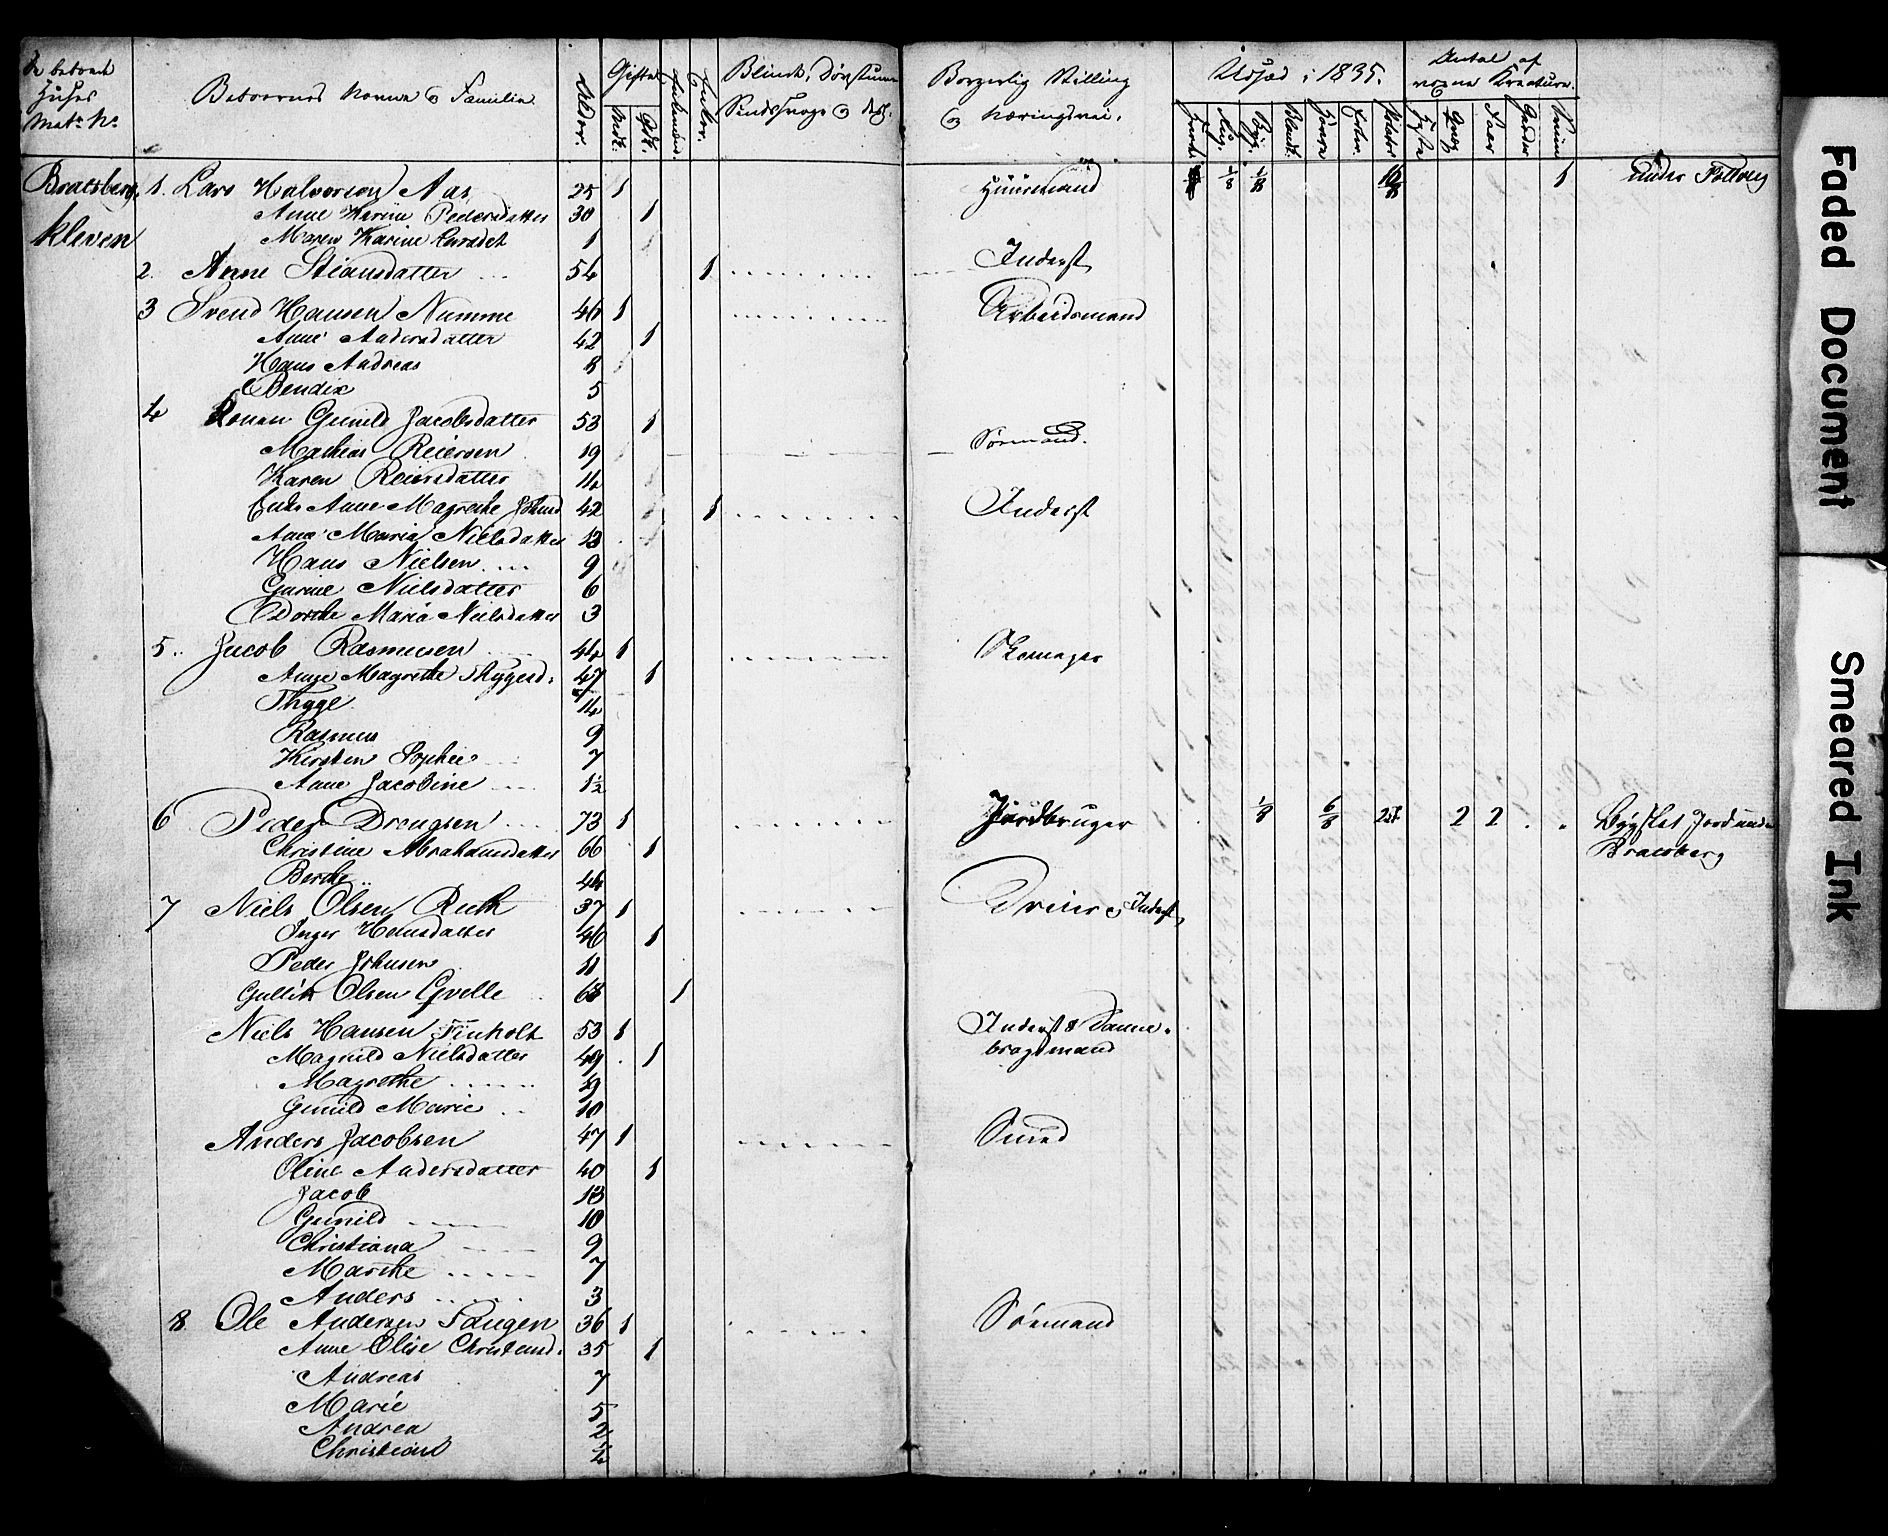 De beboede Huses Matr. No.
Beboernes Navne & Familie
Alder.
Gifte
Mdk.
Qdk.
Enker.
Blinde, Døvstumme
Sindssvage & desl.
Borgerlig Stilling
& Næringsvei.
Udsæd i 1835.
Rug.
Byg.
Blandk.
Havre
Erter.
Poteter
Antal af
voxne Kreature.
Heste
Qvæg
Faar
Geder
Sviin
Bratsberg 1. Lars Halvorsen Aas 25 1 Huusmand 1/8 1/8 1 under Follvey
kleven Anne Karine Pedersdatter 30 1
Maren Karine Larsdat 1
2. Anne Stiansdatter 54 1 Inderst
3 Svend Hansen Numme 46 1 Arbeidsmand
Anne Andersdatter 42 1
Hans Andreas 8
Bendix 5
4 Konen Gunild Jacobsdatter 53 1
Mathias Reiersen 19 Sømand.
Karen Reiersdatter 14
Enke Anne Magrethe 42 1 Inderst
Anne Maria Nielsdatter 13
Hans Nielsen 9
Gurine Nielsdatter 6
Dorthe Maria Nielsdatter 3
5. Jacob Rasmusen 44 1 Skomager
Anne Magrethe Thygesd. 47 1
Thyge 14
Rasmus 9
Kirsten Sophie 7
Anne Jacobine 1½
6 Peder Drengsen 73 1 Jordbruger 1/8 6/8 2 2 Bÿxlet Jord under
Christine Abrahamsdatter 66 1 Bratsberg
Berthe 44
7 Niels Olsen Ruth 37 1 Dreier & Inderst
Inger Hansdatter 46 1
Peder Johnsen 11
Gullik Olsen Gvelle 68 1
Niels Hansen Finholt 53 1 Inderst & Danne-
Magnild Nielsdatter 49 1 brogsmand
Magrethe 19
Gunild Marie 10
Anders Jacobsen 47 1 Smed
Oline Andersdatter 40 1
Jacob 13
Gunild 10
Christiana 9
Marthe 7
Anders 3
8. Ole Andersen Saugen 36 1 Sømand
Anne Olise Christensd. 35 1
Andreas 7
Marie 5
Andrea 2
Christian ¼
Faded Document
Smeared Ink